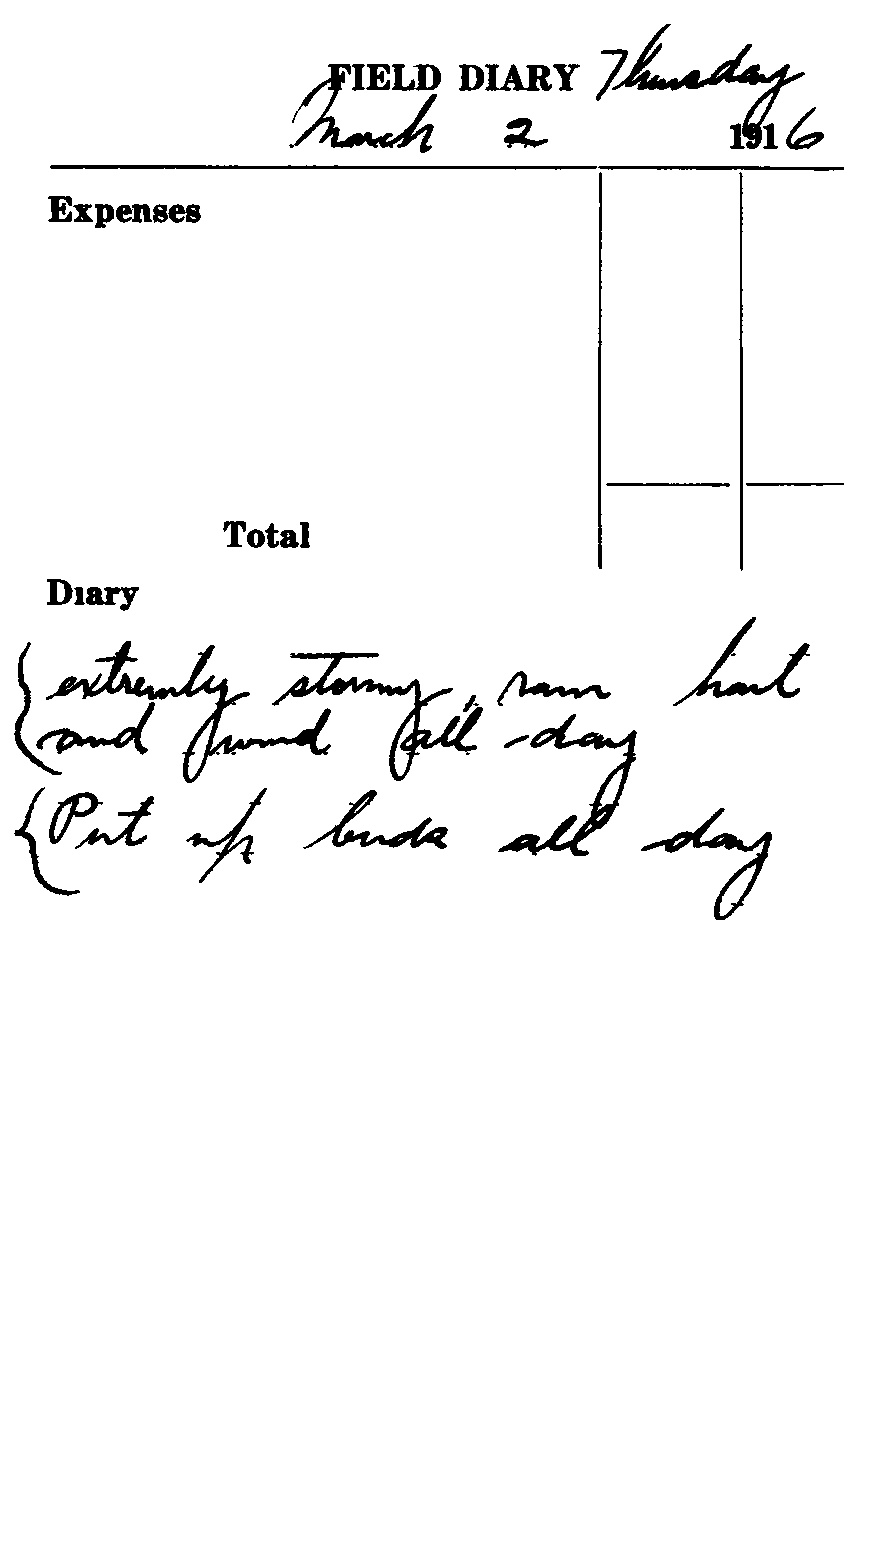 FIELD DIARY Thursday
March 2 1916
Expenses
Total
Diary
extremly stormy, rain hail
and wind all day
Put up birds all day